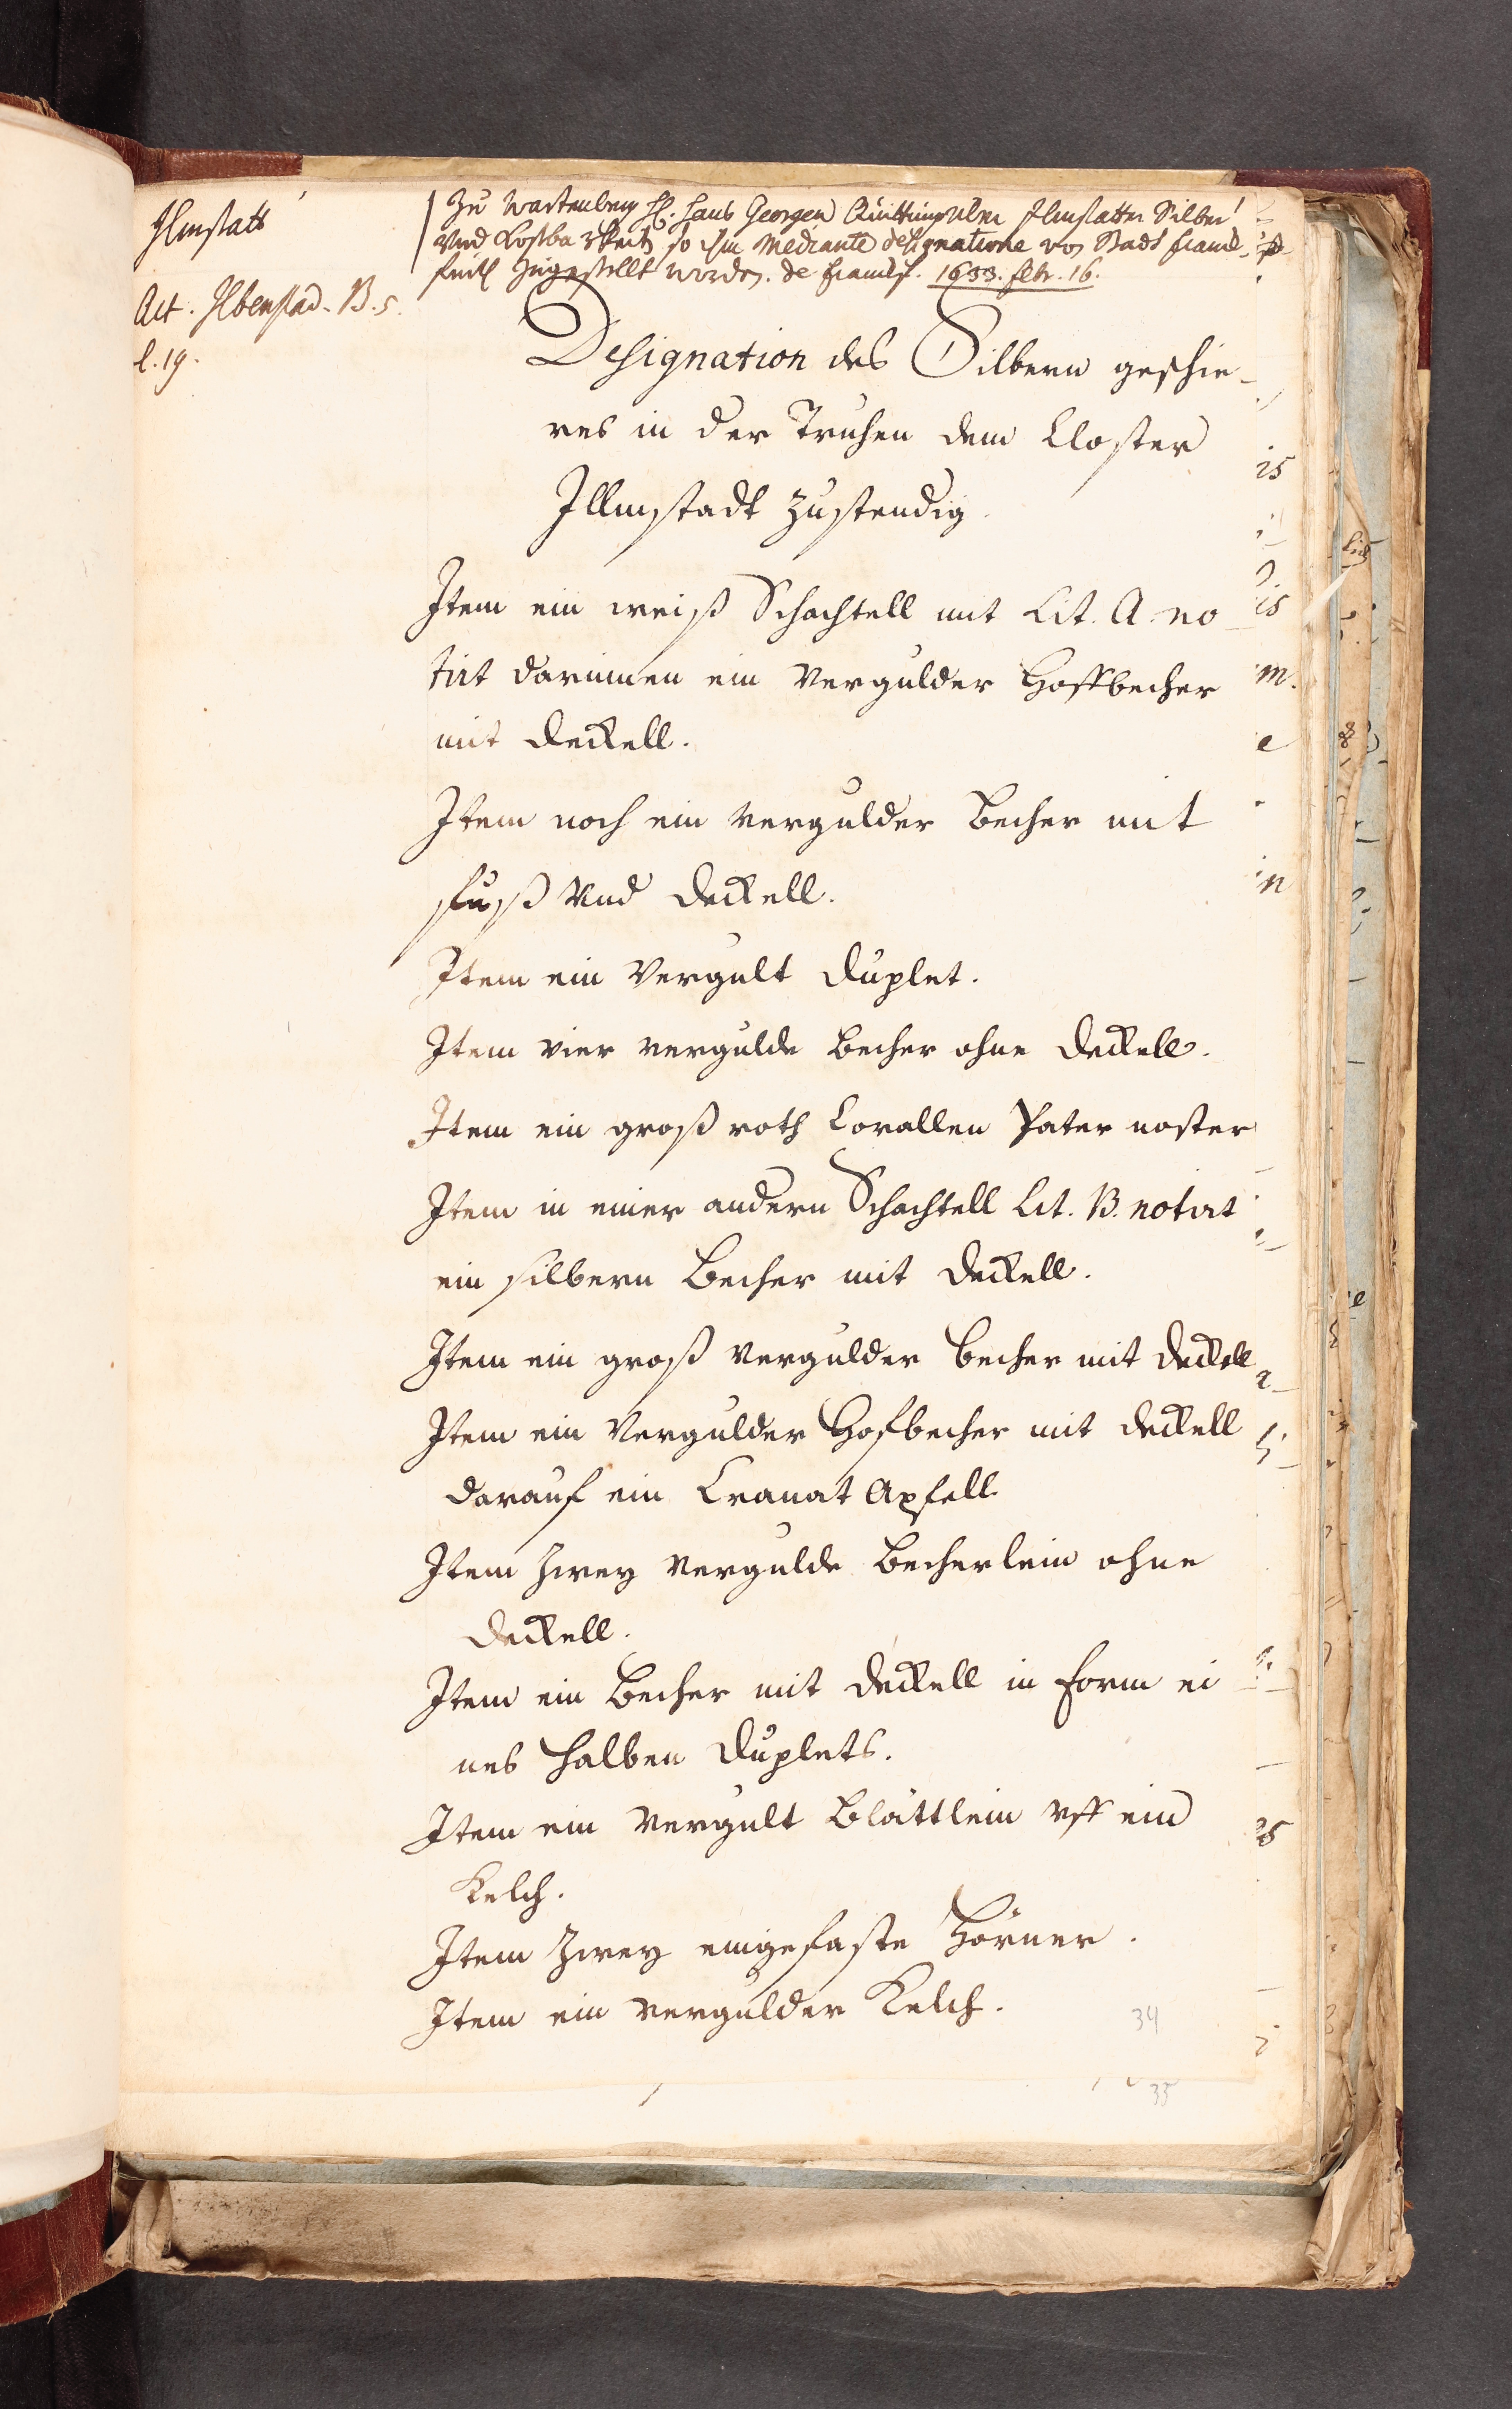 Ilmstatt
Act. Ilbenstad. B. 5.
l. 19.
Zu Wartenberg H. Hans Georgen Quittung uber Ilmstatter Silber
und Kostbarkeit so ihm mediante designatione von Stadt Franck-
furth zugestellt worden. de Francf. 1633. febr. 16.
Designation des Silbern geschir-
res in der Truhen dem Closter
Illmstadt zustendig.
Item ein weiß Schachtell mit Lit. A. no-
tirt darinnen ein vergulder Hoffbecher
mit deckell.
Item noch ein vergulder becher mit
fuß und deckell.
Item ein vergult duplet.
Item vier vergulde becher ohne deckell.
Item ein groß roth Corallen Pater noster
Item in einer andern Schachtell Lit. B. notirt
ein silbern becher mit deckell.
Item ein groß vergulder becher mit deckell
Item ein vergulder Hofbecher mit deckell
darauf ein Cranat Apfell
Item zwey vergulde becherlein ohne
deckell.
Item ein becher mit deckell in form ei
nes halben duplets.
Item ein vergult blättlein uff ein
Kelch.
Item zwey eingefaste Hörner.
Item ein vergulder Kelch.
34
35